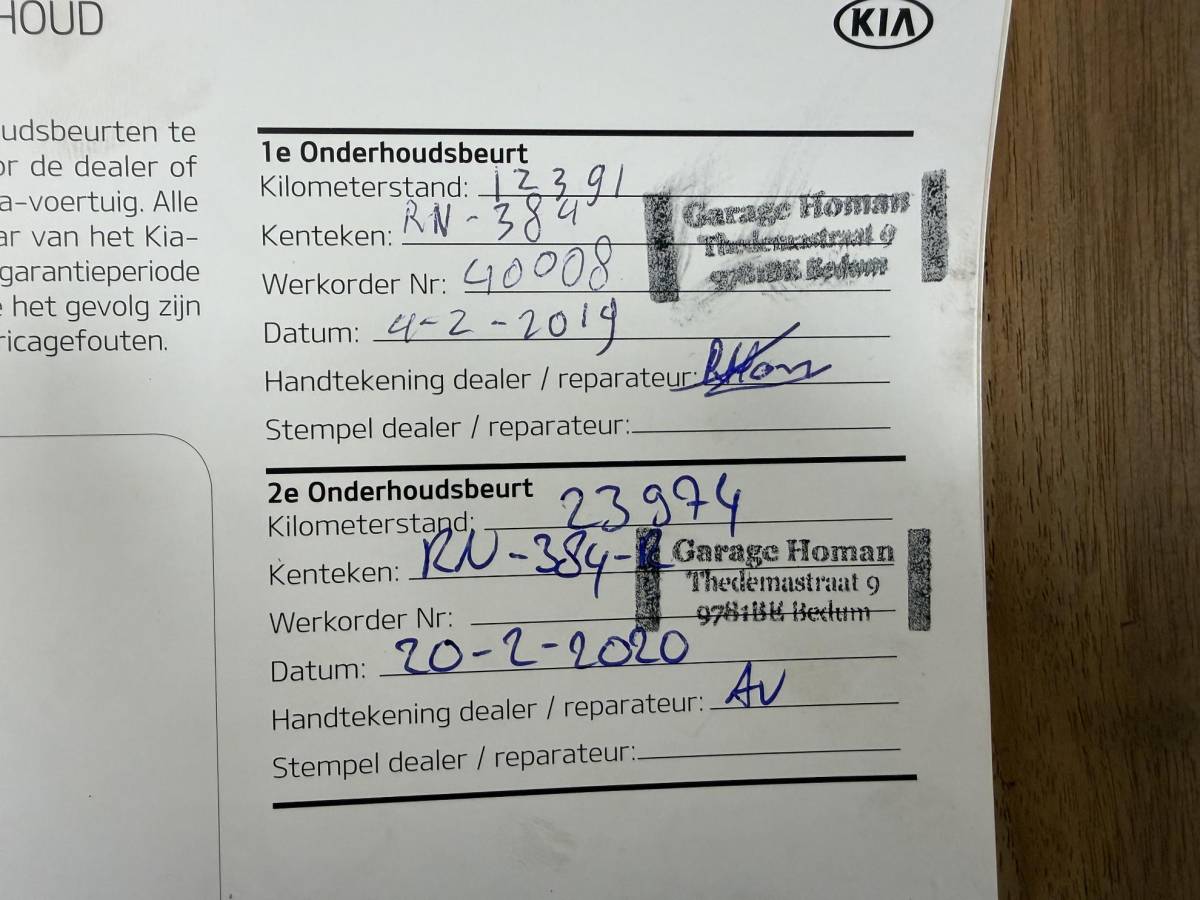 HOUD
KIA
udsbeurten te
or de dealer of
a-voertuig. Alle
ar van het Kia-
garantieperiode
e het gevolg zijn
ricagefouten.
1e Onderhoudsbeurt
Kilometerstand: 12391
Kenteken: RN-384
Werkorder Nr: 40008
Datum: 4-2-2019
Handtekening dealer / reparateur:
Stempel dealer / reparateur:
Garage Homan
Thedemastraat 9
9781BK Bedum
2e Onderhoudsbeurt
Kilometerstand: 23974
Kenteken: RN-384-R
Werkorder Nr:
Datum: 20-2-2020
Handtekening dealer / reparateur: AV
Stempel dealer / reparateur:
Garage Homan
Thedemastraat 9
9781BK Bedum